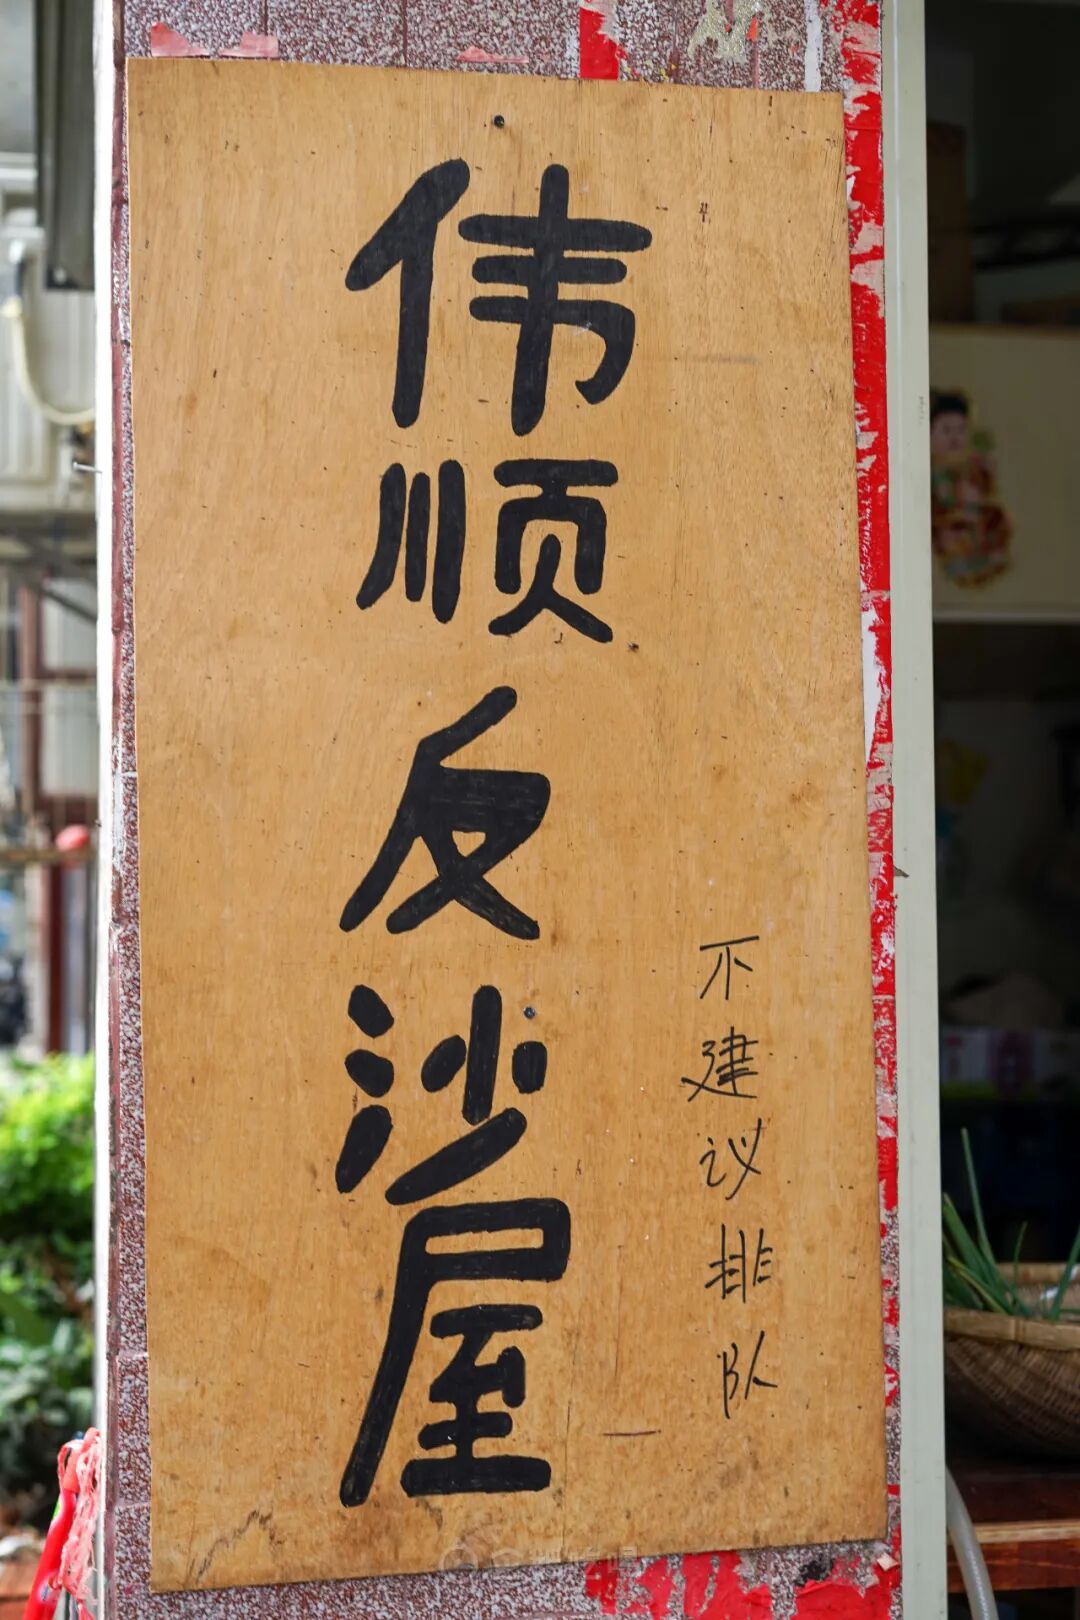 伟顺反沙屋
不建议排队